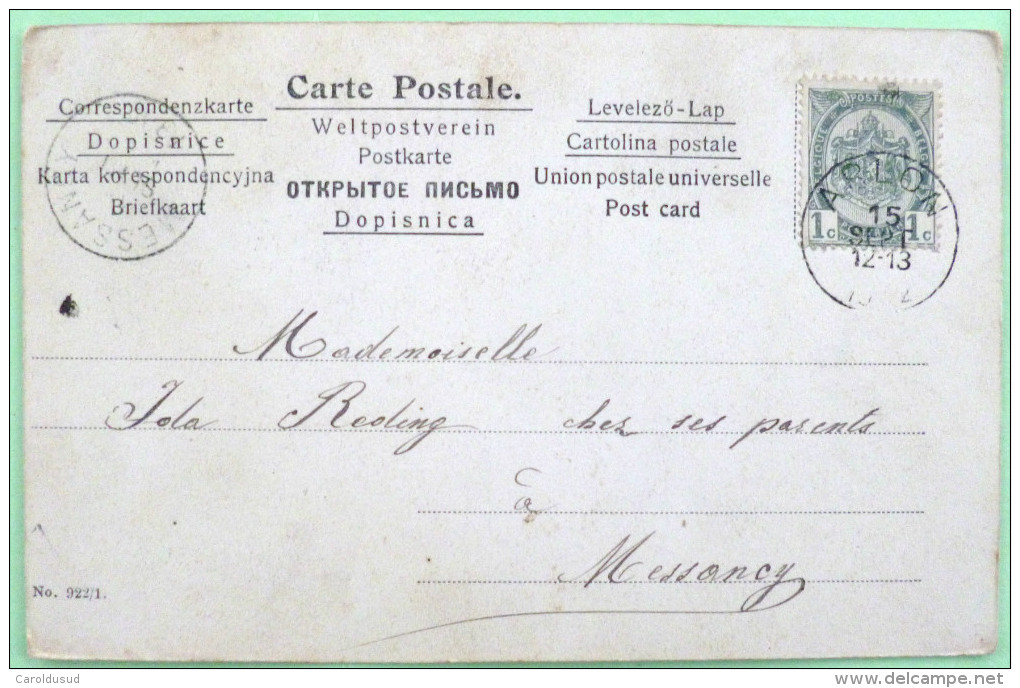 Carte Postale.
Correspondenzkarte
Dopisnice
Karta korespondencyjna
Briefkaart
Weltpostverein
Postkarte
ОТКРЫТОЕ ПИСЬМО
Dopisnica
Levelező-Lap
Cartolina postale
Union postale universelle
Post card
POSTES
BELGIQUE
1c 1c
ARLON
15
SEPT
12-13
MESSANCY
Mademoiselle
Ida Reding chez ses parents
à
Messancy
No. 922/1.
Caroldusud